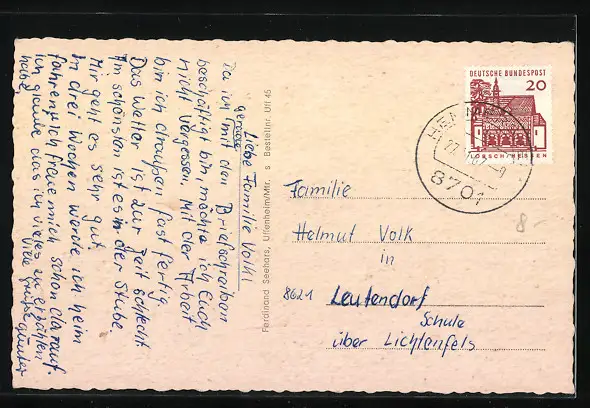 Liebe Familie Volk!
Da ich gerade mit den Briefschreiben
beschäftigt bin, möchte ich Euch
nicht vergessen. Mit der Arbeit
bin ich draußen fast fertig.
Das Wetter ist zur Zeit schlecht
Am schönsten ist es in der Stube
Mir geht es sehr gut
In drei Wochen werde ich heim
fahren. Ich freue mich schon darauf.
Ich glaube das ich vieles zu erzählen
habe.
Viele Grüße Günter
Ferdinand Seehars, Uffenheim/Wttr. s Bestellnr. Uff 45
DEUTSCHE BUNDESPOST
20
LORSCH/HESSEN
8701
8-
Familie
Helmut Volk
in
8621 Leutendorf
Schule
über Lichtenfels